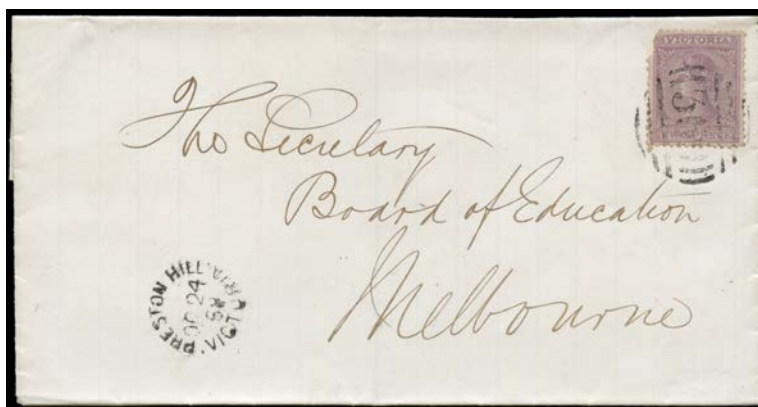 VICTORIA
The Secretary
Board of Education
Melbourne
PRESTON HILL
OC 24
VICTORIA